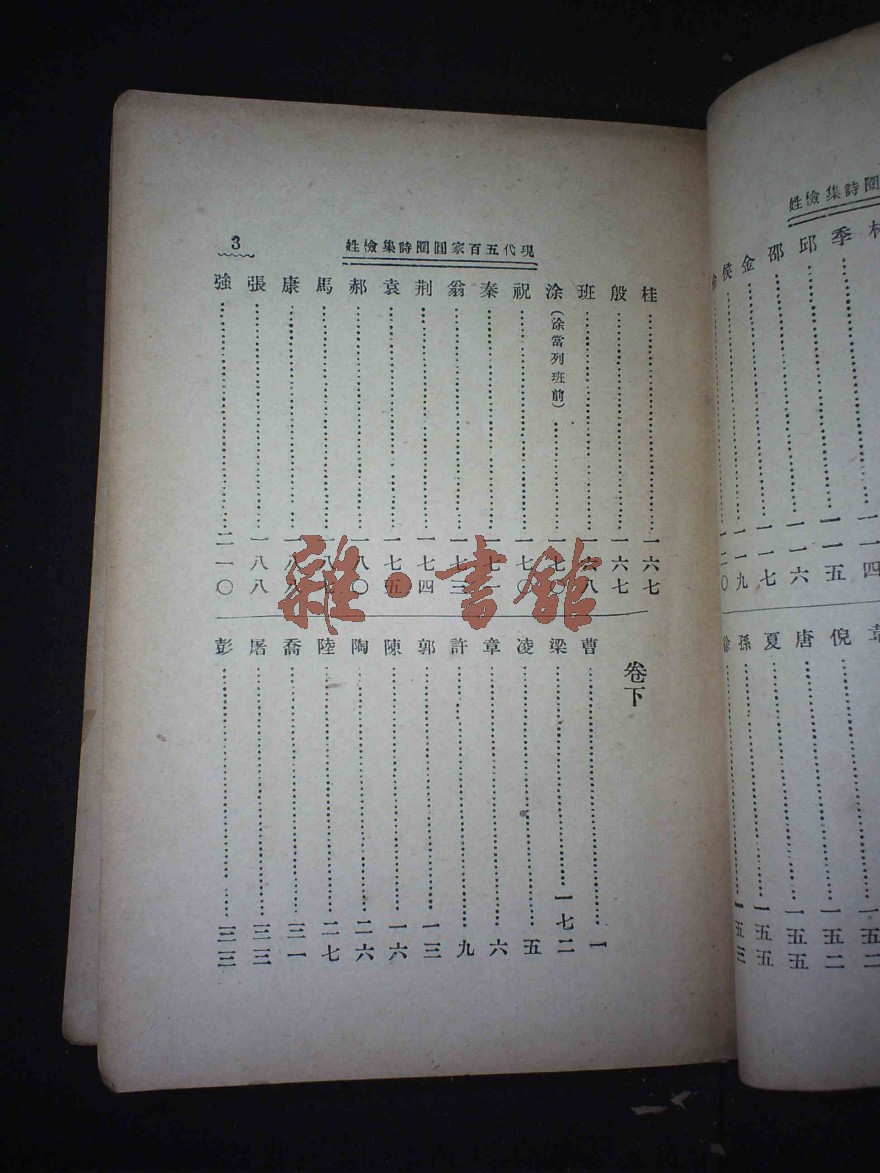 圈時集檢姓
季……一一五
邱……一一六
邵……一一七
金……一一九
侯……一二〇
倪……一五二
唐……一五五
夏……一五五
孫……一五三
現代五百家圓圈時集檢姓
3
桂……一六七
殷……一六七
班……一六八
涂(涂當列班前)……一七〇
祝……一七〇
秦……一七
翁……一七三
荆……一七四
袁……一七五
郝……一八〇
馬……一八
康……一八
張……一八八
強……二一〇
卷下
曹……一
梁……一七二
凌……五
章……六
許……九
郭……一三
陳……一六
陶……二六
陸……二七
喬……三一
屠……三三
彭……三三
雜·書館